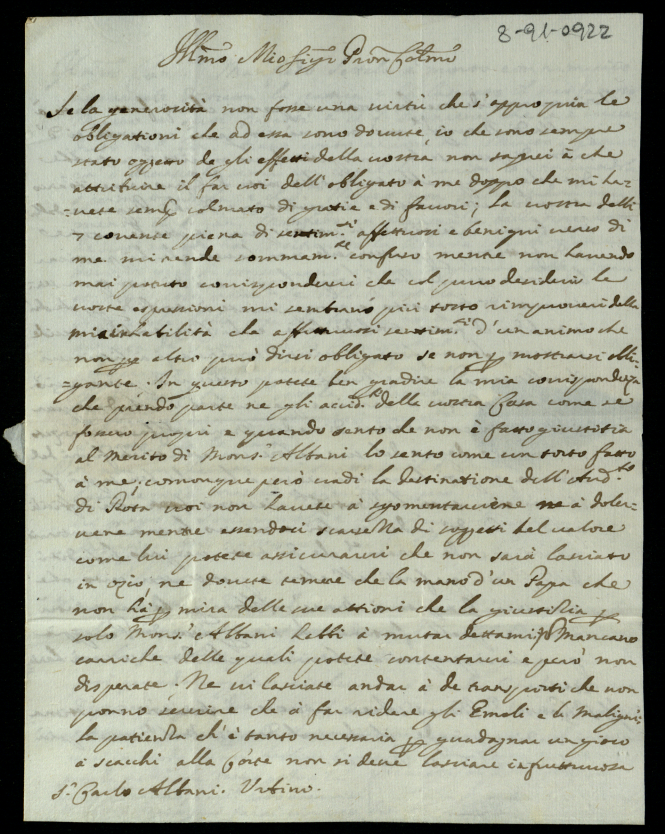 8-91-0922
Ill.mo Mio Sig.r Pron Col.mo
Se la generosità non fosse una virtù che s'appropria le
obligationi che ad essa sono dovute, io che sono sempre
stato oggetto de gli effetti della vostra non saprei à che
attribuire il far voi dell'obligato à me doppo che mi ha-
=vete semp colmato di gratie e di favori; la vostra delli
7 corrente piena di sentim.ti affettuosi e benigni verso di
me mi rende sommam.te confuso mentre non havendo
mai potuto corrispondervi che col puro desiderio le
vostre espressioni mi sembrano più tosto rimproveri della
mia inhabilità che affettuosi sentim.ti d'un animo che
non p altro può dirsi obligato se non p mostrarsi obli-
=gante. In questo potete ben gradire la mia corrispondenza
che prendo parte ne gli acid.ti della vostra Casa come se
fossero proprii e quando sento che non è fatto giustitia
al Merito di Mons.r Albani lo sento come un torto fatto
à me; comonque però vadi la destinatione dell'Aud.to
di Rota voi non havete à sgomentarvene ne à doler-
vene mentre essendoci scarsezza di soggetti del valore
come lui potete assicurarvi che non sarà lasciato
in ozio, ne dovete temere che la mano d'un Papa che
non hà p mira delle sue attioni che la giustitia p
solo Mons.r Albani habbi à mutar dettami, Mancano
cariche delle quali potete contentarvi e però non
disperate. Ne vi lasciate andar à de transporti che non
ponno servire che à far ridere gli Emoli e li Maligni;
la patienza ch'è tanto necessaria p guadagnar un gioco
à scacchi alla Corte non si deve lasciare infruttuosa
S.r Carlo Albani. Urbino.